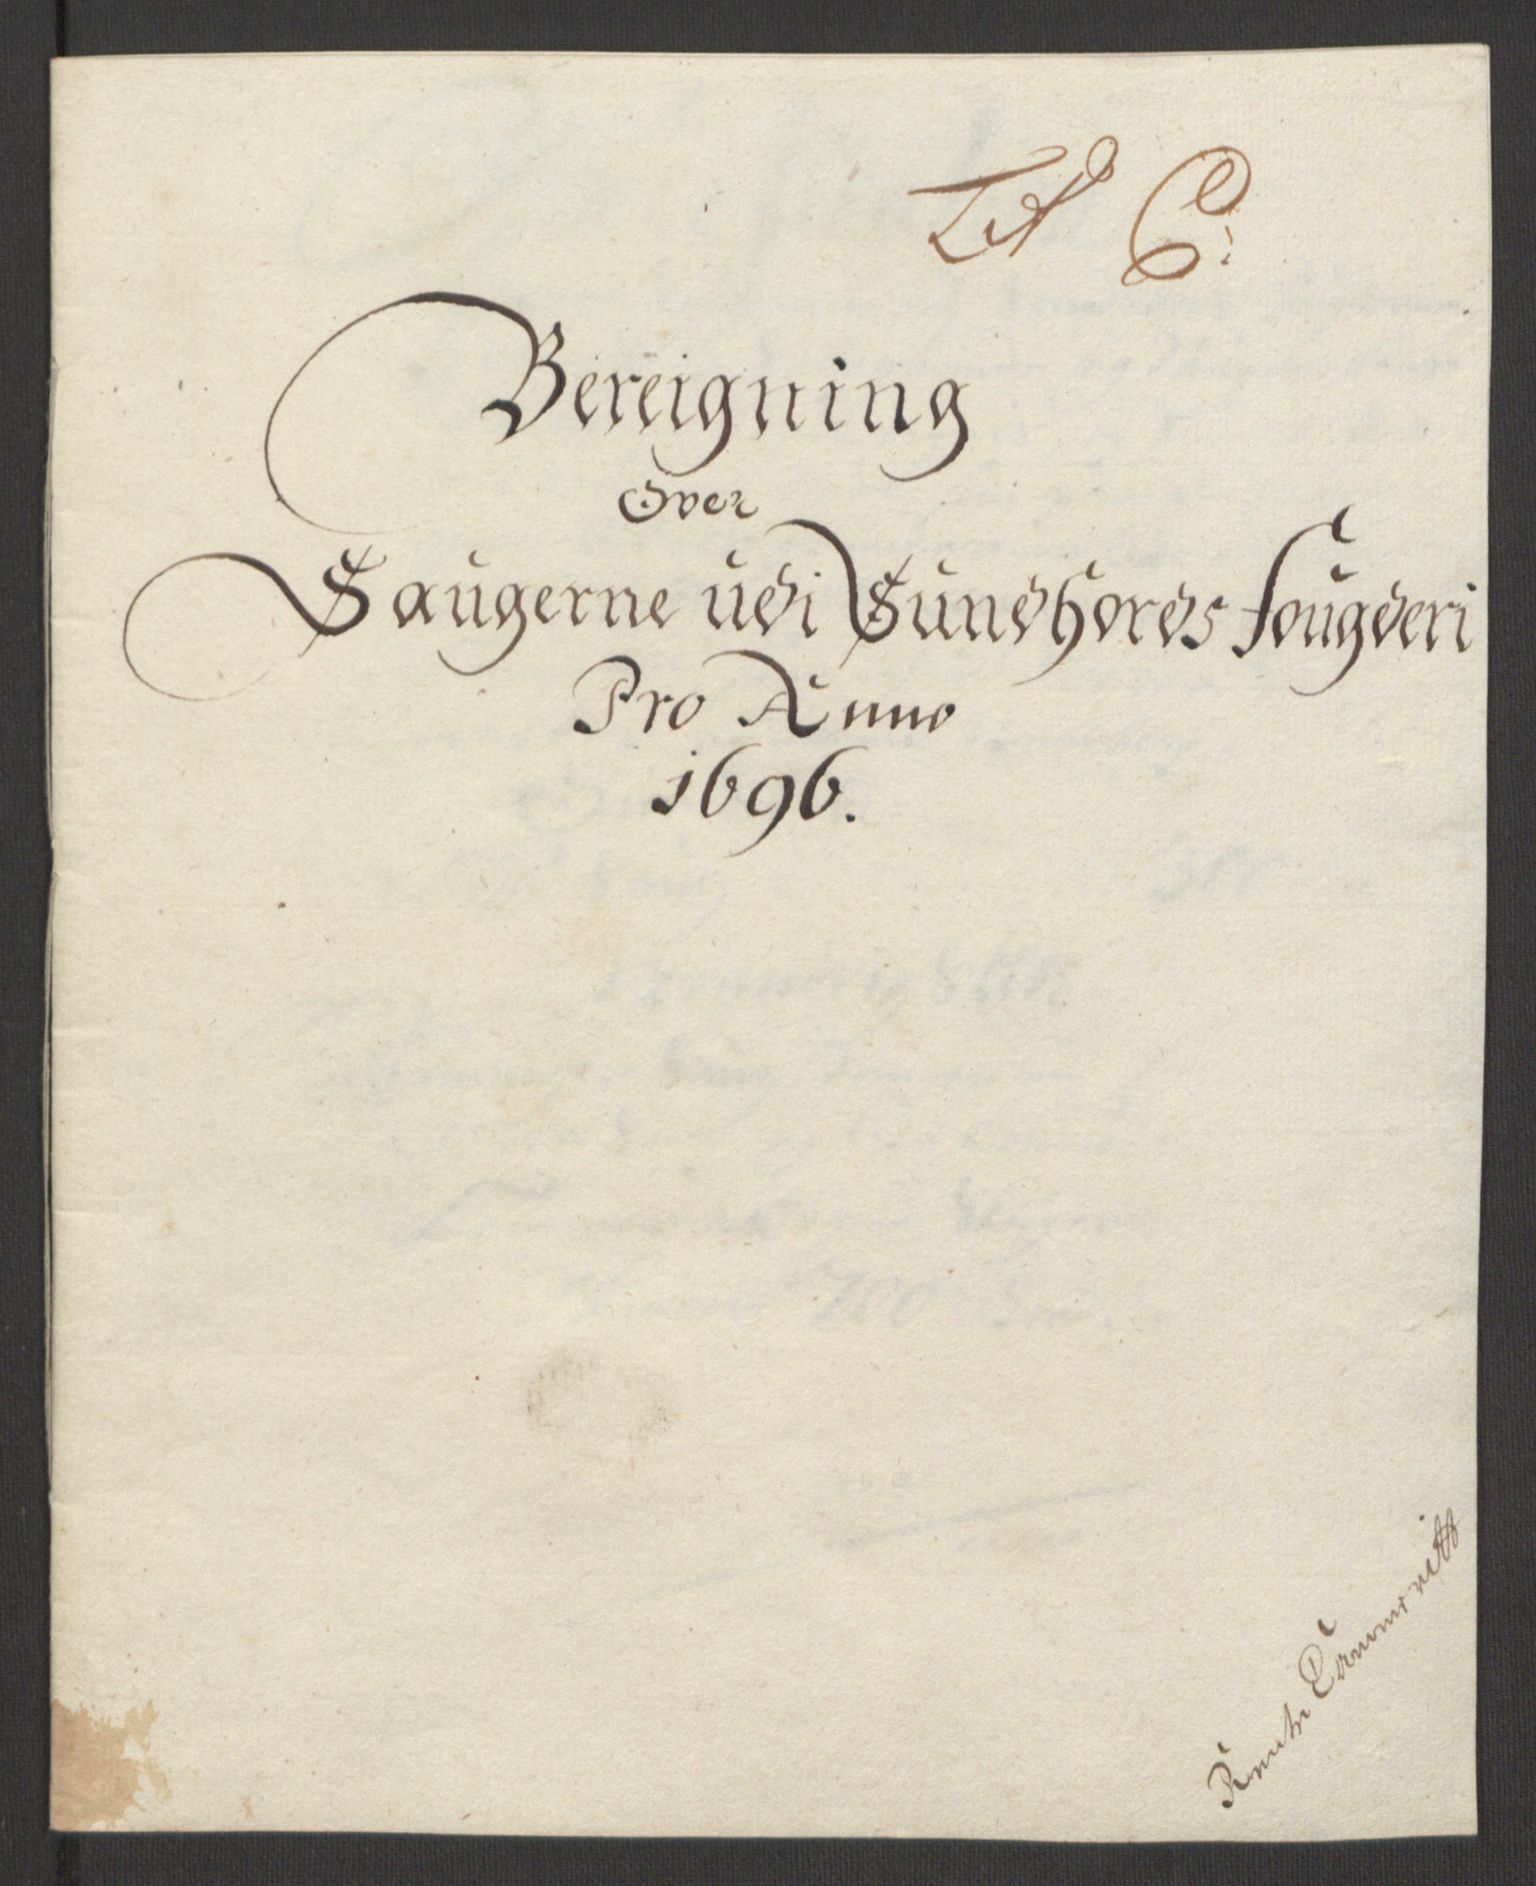 Lit C:
Bereigning
Over
Saugerne udi Sundhords fougderi
Pro Anno
1696.
Rente Cammeritt